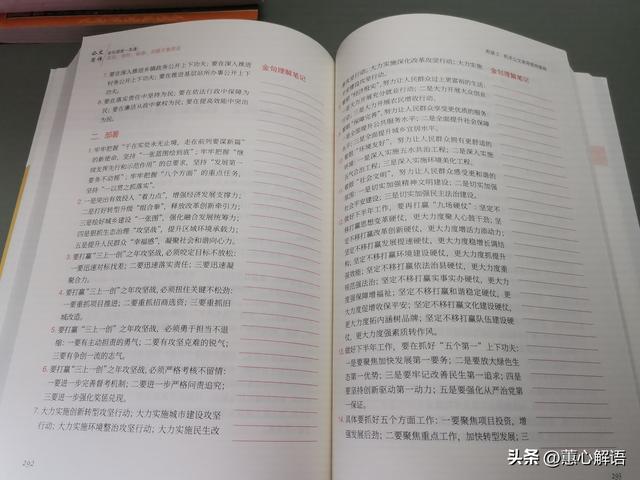 公文写作
金句理解笔记
7. 要在深入推进乡镇政务公开上下功夫；要在深入推进
村务公开上下功夫；要在推进基层站所办事公开上下
功夫。
8. 要在落实责任中坚持为民；要在依法行政中保障为
民；要在廉洁从政中掌权为民；要在提高效能中突出
为民。
二、部署
1. 牢牢把握“干在实处永无止境，走在前列要谋新篇”
的新使命，坚持“一张蓝图绘到底”；牢牢把握“继
续发挥先行和示范作用”的总要求，坚持“发展第一
要务不动摇”；牢牢把握“八个方面”的重点任务，
坚持“一以贯之抓落实”。
2. 一是突出有效投入“着力点”，增强经济发展支撑力；
二是打好转型升级“组合拳”，释放改革创新牵引力；
三是绘好城乡建设“一张图”，强化融合发展统筹力；
四是狠抓生态治理“攻坚战”，提升区域环境承载力；
五是提升人民群众“幸福感”，凝聚社会和谐向心力。
3. 要打赢“三上一创”之年攻坚战，必须咬定目标不放松：
一要迅速对标找差；二要迅速落实责任；三要迅速凝
聚合力。
4. 要打赢“三上一创”之年攻坚战，必须扭住关键不松劲：
一要重抓项目推进；二要重抓招商选资；三要重抓旧
城改造。
5. 要打赢“三上一创”之年攻坚战，必须勇于担当不退
缩：一要有主动担责的勇气；二要有攻坚克难的锐气；
三要有争创一流的志气。
6. 要打赢“三上一创”之年攻坚战，必须严格考核不留情：
一要进一步完善督考机制；二要进一步严格问责追究；
三要进一步强化奖惩兑现。
7. 大力实施创新转型攻坚行动；大力实施城市建设攻坚
行动；大力实施环境整治攻坚行动；大力实施民生改
292
金句理解笔记
攻坚行动；大力实施深化改革攻坚行动；大力实施
建设攻坚行动。
“经济殷实”，努力让人民群众过上更富裕的生活：
大力开展充分就业行动；二是大力开展大众创业
三是大力开展农民增收行动。
“保障完善”，努力让人民群众享受更优质的服务：
全面提升公共服务水平；二是全面提升社会保障
三是全面提升城乡宜居水平。
“环境友好”，努力让人民群众拥有更舒适的
一是深入实施五水共治工程；二是深入实施
工程；三是深入实施环境美化工程。
“社会文明”，努力让人民群众感受更和谐的
一是切实加强精神文明建设；二是切实加强
平安建设；三是切实加强民主法治建设。
做好下半年工作，要再打赢“九场硬仗”：坚定不移
打赢思想变革硬仗，更大力度聚人心鼓干劲；坚
定不移打赢改革创新硬仗，更大力度增活力添动力；
坚定不移打赢发展提速硬仗，更大力度稳增长调结
构；坚定不移打赢环境建设硬仗，更大力度抓提升
强效能；坚定不移打赢依法治县硬仗，更大力度重
规范强法治；坚定不移打赢实事实办硬仗，更大力
度强保障增福祉；坚定不移打赢和谐稳定硬仗，更
大力度促增收保平安；坚定不移打赢文化建设硬仗，
更大力度拓内涵树品牌；坚定不移打赢队伍建设硬
仗，更大力度强素质转作风。
做好下半年工作，要在抓好“五个第一”上下功夫：
一是要聚焦加快发展第一要务；二是要放大绿色生
态第一优势；三是要牢记改善民生第一追求；四是
要坚持创新驱动第一动力；五是要强化从严治党第
一保证。
14. 具体要抓好五个方面工作：一要聚焦项目投资，增
强发展后劲；二要聚焦重点工作，加快转型发展；三
头条 @蕙心解语